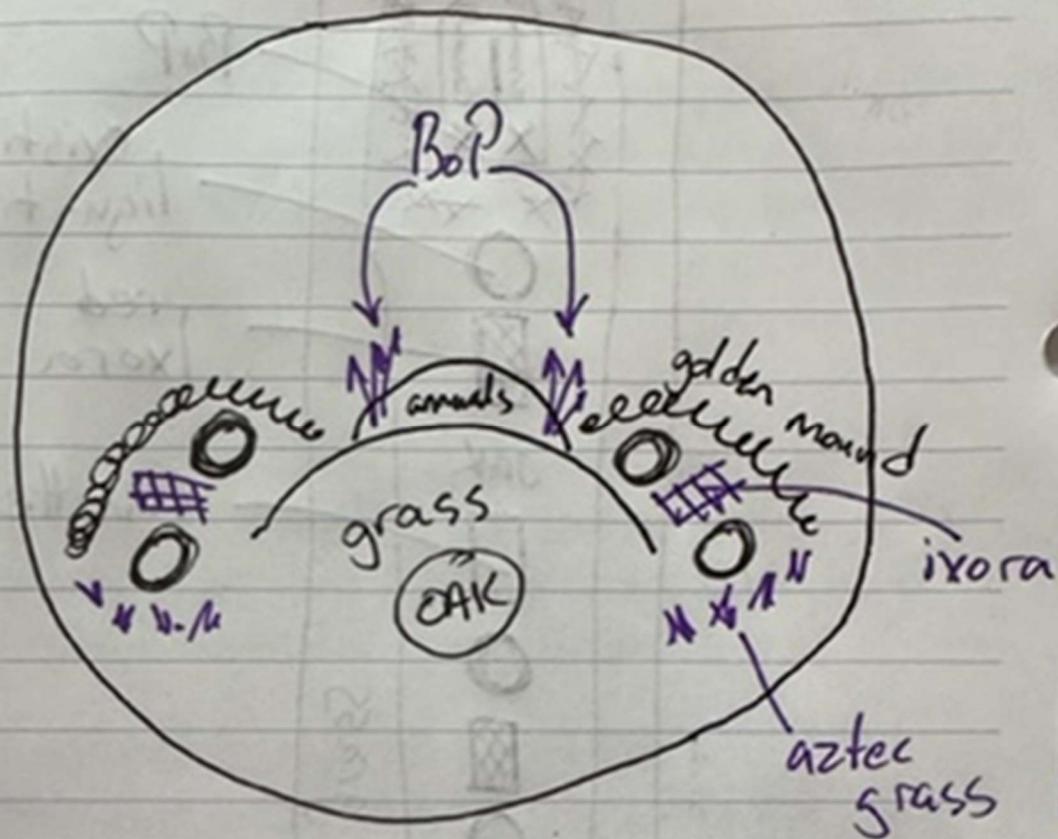 BoP
annuals
golden
mound
grass
OAK
ixora
aztec
grass